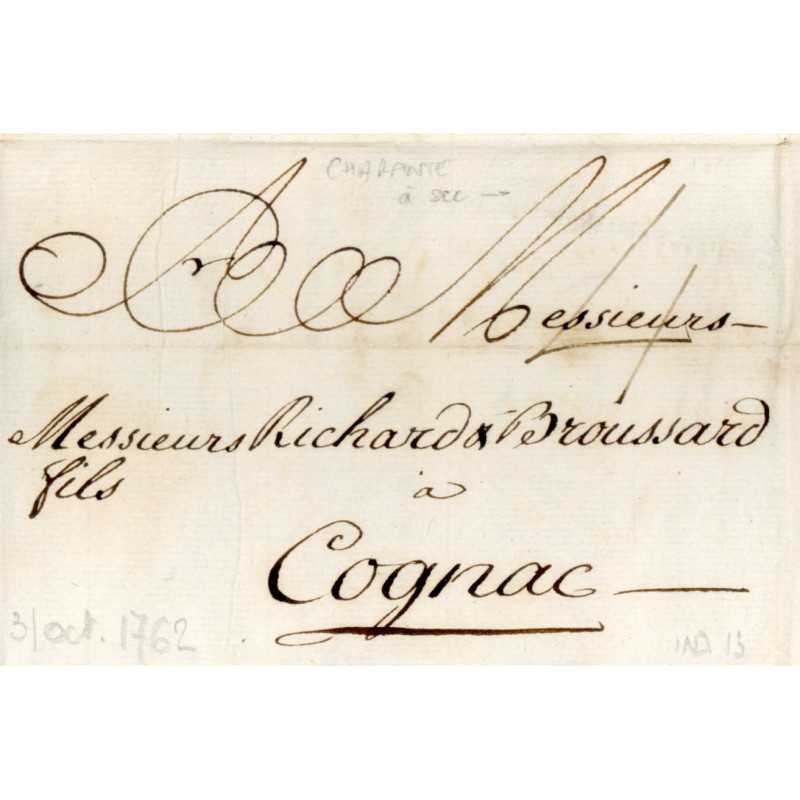 CHARANTE
à sec —
A Messieurs —
Messieurs Richard & Broussard
fils
à
Cognac —
31 oct. 1762
IND 13